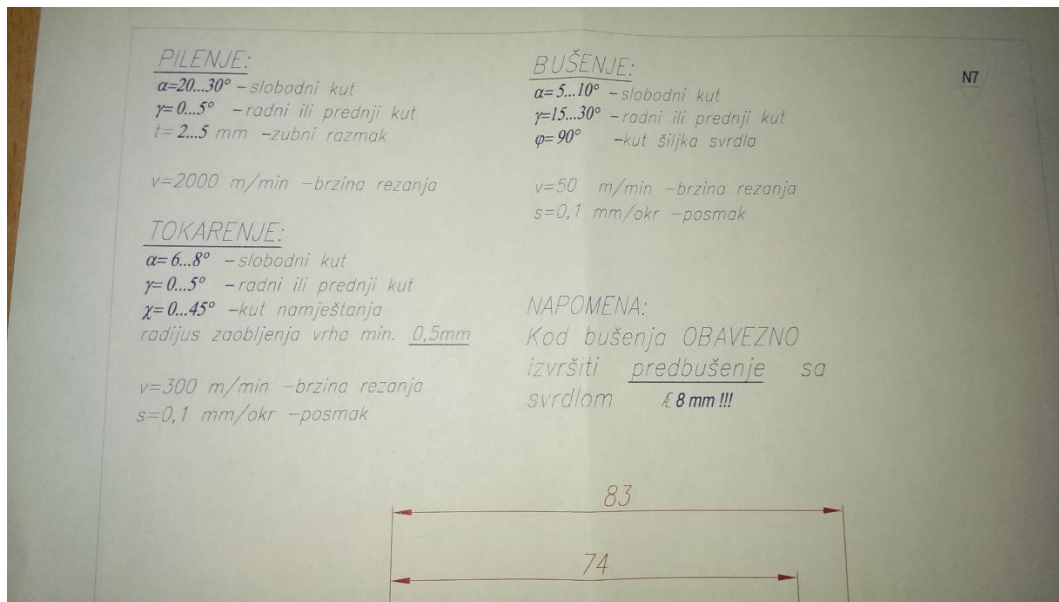 PILENJE:
α=20...30° –slobodni kut
γ=0...5° –radni ili prednji kut
t=2...5 mm –zubni razmak
v=2000 m/min –brzina rezanja
TOKARENJE:
α=6...8° –slobodni kut
γ=0...5° –radni ili prednji kut
χ=0...45° –kut namještanja
radijus zaobljenja vrha min. 0,5mm
v=300 m/min –brzina rezanja
s=0,1 mm/okr –posmak
BUŠENJE:
α=5...10° –slobodni kut
γ=15...30° –radni ili prednji kut
φ=90° –kut šiljka svrdla
v=50 m/min –brzina rezanja
s=0,1 mm/okr –posmak
NAPOMENA:
Kod bušenja OBAVEZNO
izvršiti predbušenje sa
svrdlom Æ 8 mm !!!
N7
83
74